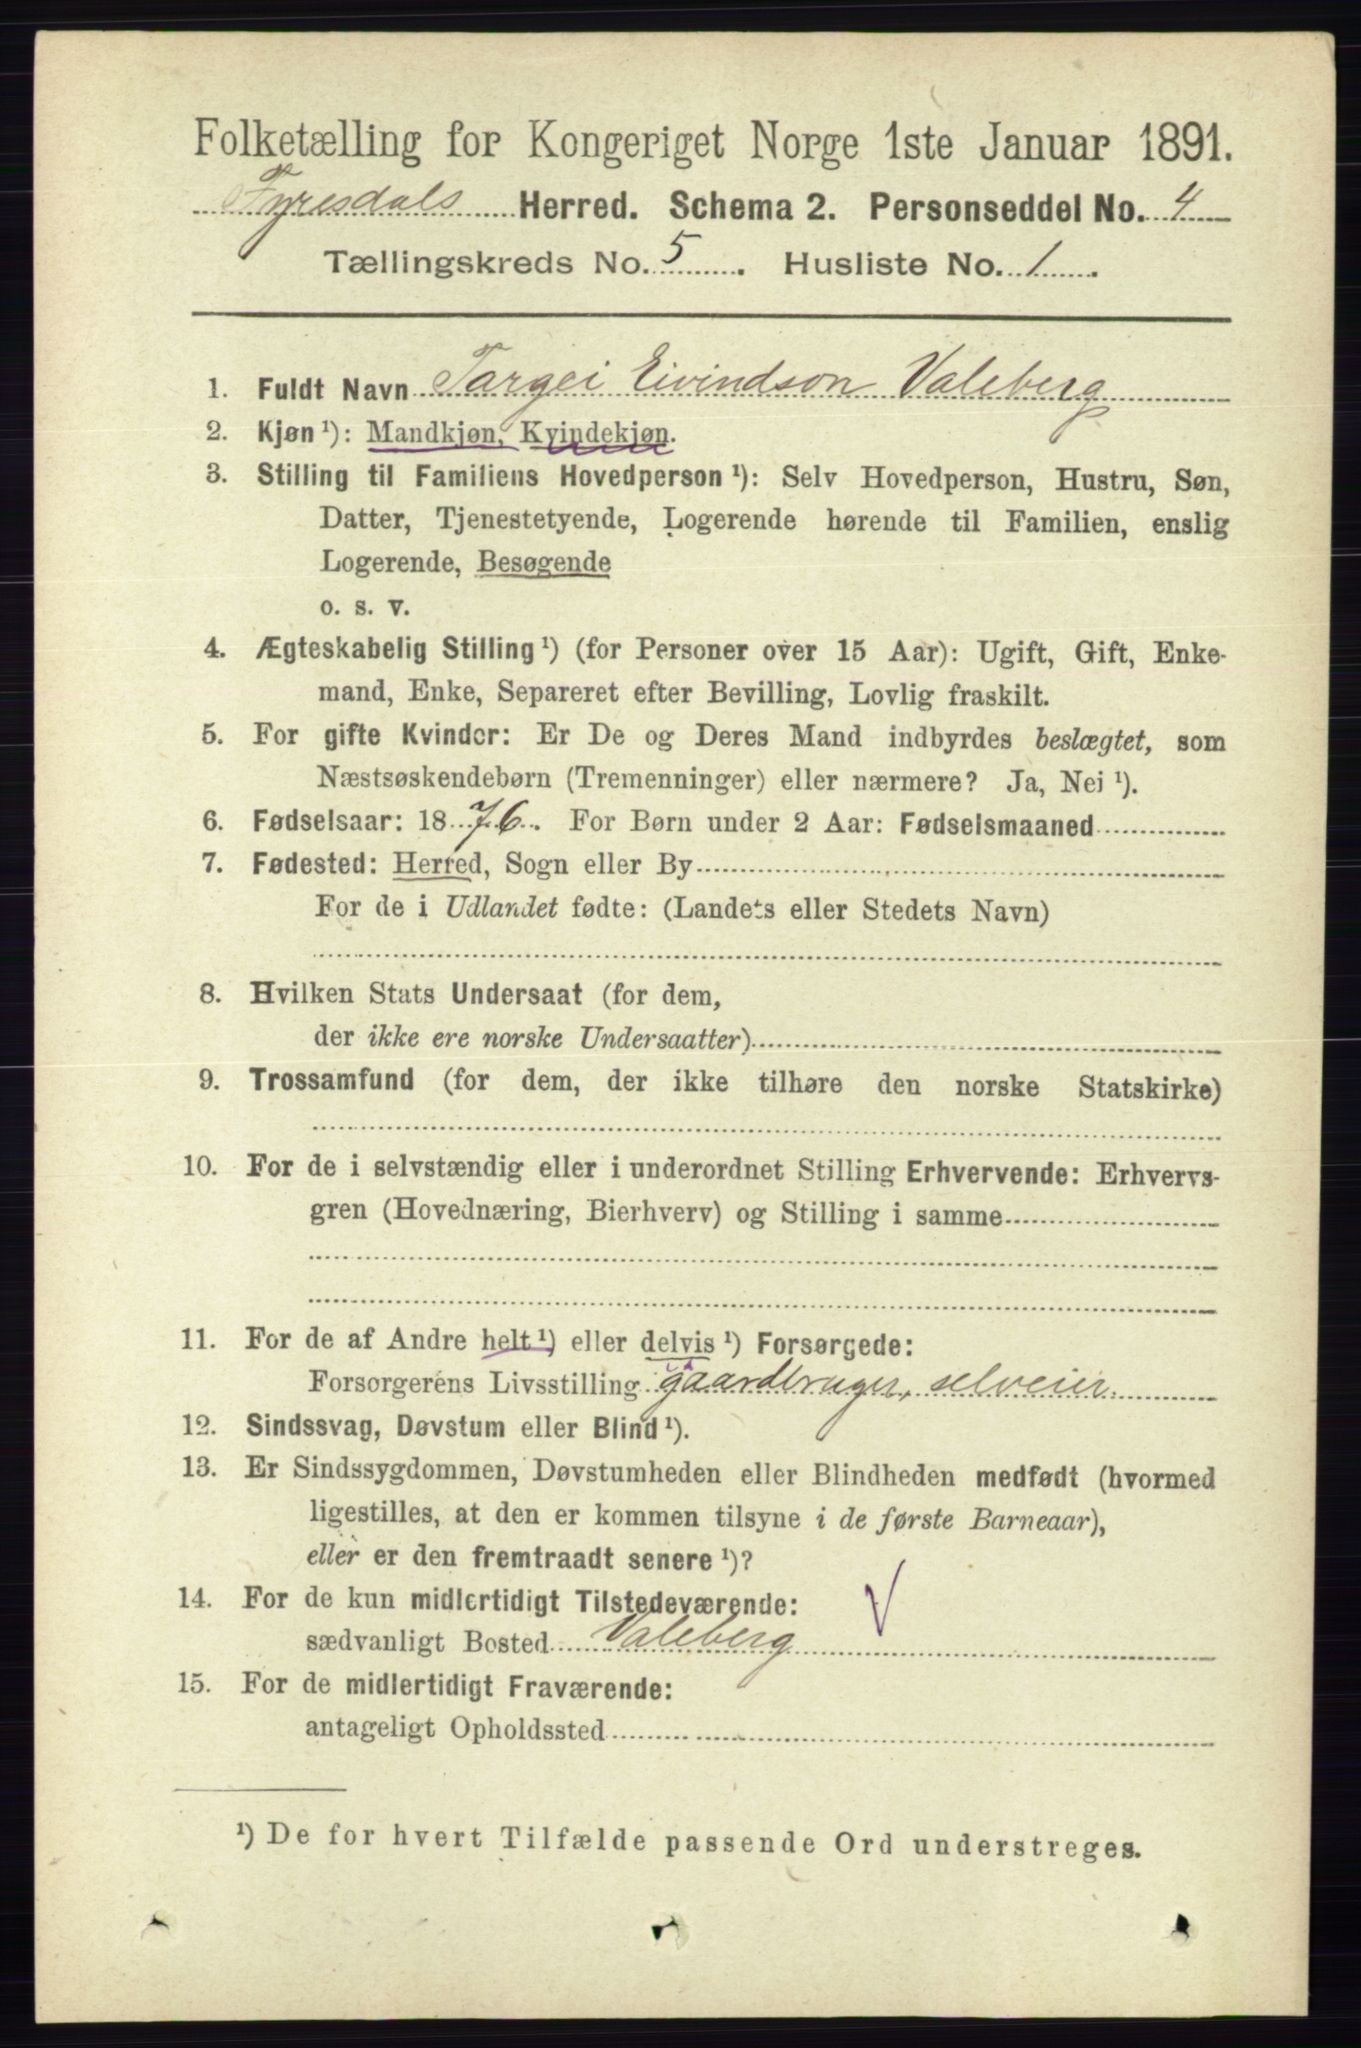 Folketælling for Kongeriget Norge 1ste Januar 1891.
Fyresdals Herred. Schema 2. Personseddel No. 4
Tællingskreds No. 5. Husliste No. 1.
1. Fuldt Navn Targei Eivindson Valeberg
2. Kjøn ¹): Mandkjøn, Kvindekjøn.
3. Stilling til Familiens Hovedperson ¹): Selv Hovedperson, Hustru, Søn,
Datter, Tjenestetyende, Logerende hørende til Familien, enslig
Logerende, Besøgende
o. s. v.
4. Ægteskabelig Stilling ¹) (for Personer over 15 Aar): Ugift, Gift, Enke-
mand, Enke, Separeret efter Bevilling, Lovlig fraskilt.
5. For gifte Kvinder: Er De og Deres Mand indbyrdes beslægtet, som
Næstsøskendebørn (Tremenninger) eller nærmere? Ja, Nei ¹).
6. Fødselsaar: 1876. For Børn under 2 Aar: Fødselsmaaned
7. Fødested: Herred, Sogn eller By
For de i Udlandet fødte: (Landets eller Stedets Navn)
8. Hvilken Stats Undersaat (for dem,
der ikke ere norske Undersaatter)
9. Trossamfund (for dem, der ikke tilhøre den norske Statskirke)
10. For de i selvstændig eller i underordnet Stilling Erhvervende: Erhvervs-
gren (Hovednæring, Bierhverv) og Stilling i samme
11. For de af Andre helt ¹) eller delvis ¹) Forsørgede:
Forsørgerens Livsstilling gaardbruger, selveier.
12. Sindssvag, Døvstum eller Blind ¹).
13. Er Sindssygdommen, Døvstumheden eller Blindheden medfødt (hvormed
ligestilles, at den er kommen tilsyne i de første Barneaar),
eller er den fremtraadt senere ¹)?
14. For de kun midlertidigt Tilstedeværende: V
sædvanligt Bosted Valeberg
15. For de midlertidigt Fraværende:
antageligt Opholdssted
¹) De for hvert Tilfælde passende Ord understreges.